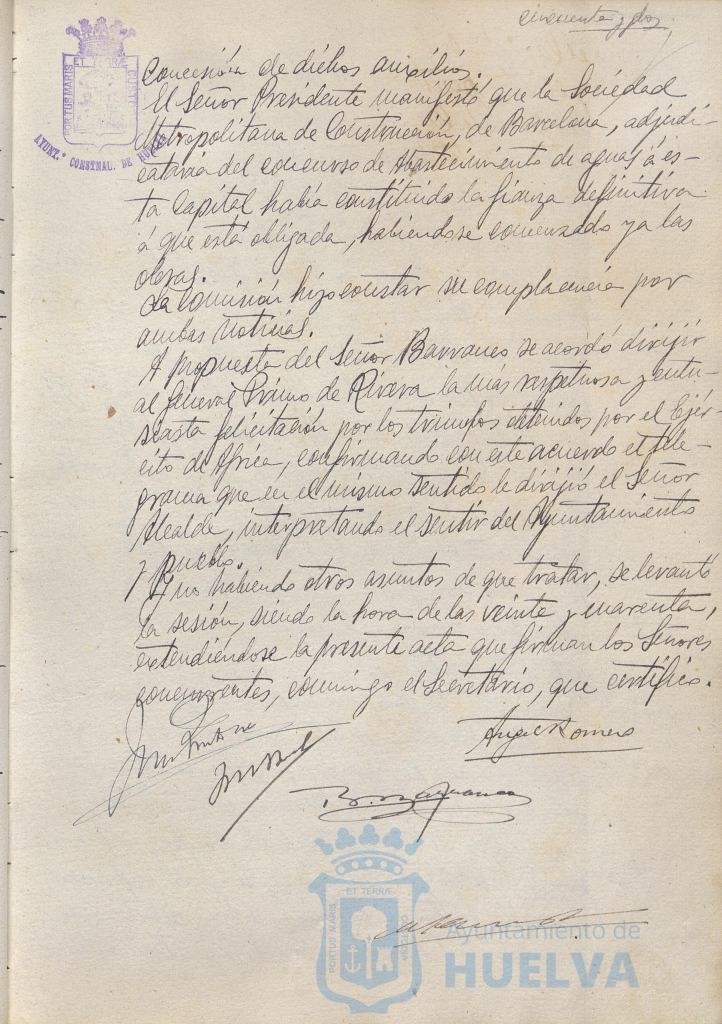 cincuenta y dos
PORTUS MARIS ET TERRÆ CUSTODIA
AYUNT.º CONSTNAL. DE HUELVA
concesión de dichos auxilios.
El Señor Presidente manifestó que la Sociedad
Metropolitana de Construcción, de Barcelona, adjudi-
cataria del concurso de Abastecimiento de aguas á es-
ta Capital había constituido la fianza definitiva
á que está obligada, habiéndose comenzado ya las
obras.
La Comisión hizo constar su complacencia por
ambas noticias.
A propuesta del Señor Barranco se acordó dirijir
al General Primo de Rivera la más respetuosa y entu-
siasta felicitación por los triunfos obtenidos por el Ejér-
cito de África, confirmando con este acuerdo el tele-
grama que en el mismo sentido le dirijió el Señor
Alcalde, interpretando el sentir del Ayuntamiento
y pueblo.
Y no habiendo otros asuntos de que tratar, se levantó
la sesión, siendo la hora de las veinte y cuarenta,
extendiéndose la presente acta que firman los Señores
concurrentes, conmigo el Secretario, que certifico.
Angel Romero
PORTUS MARIS ET TERRÆ CUSTODIA
Ayuntamiento de
HUELVA